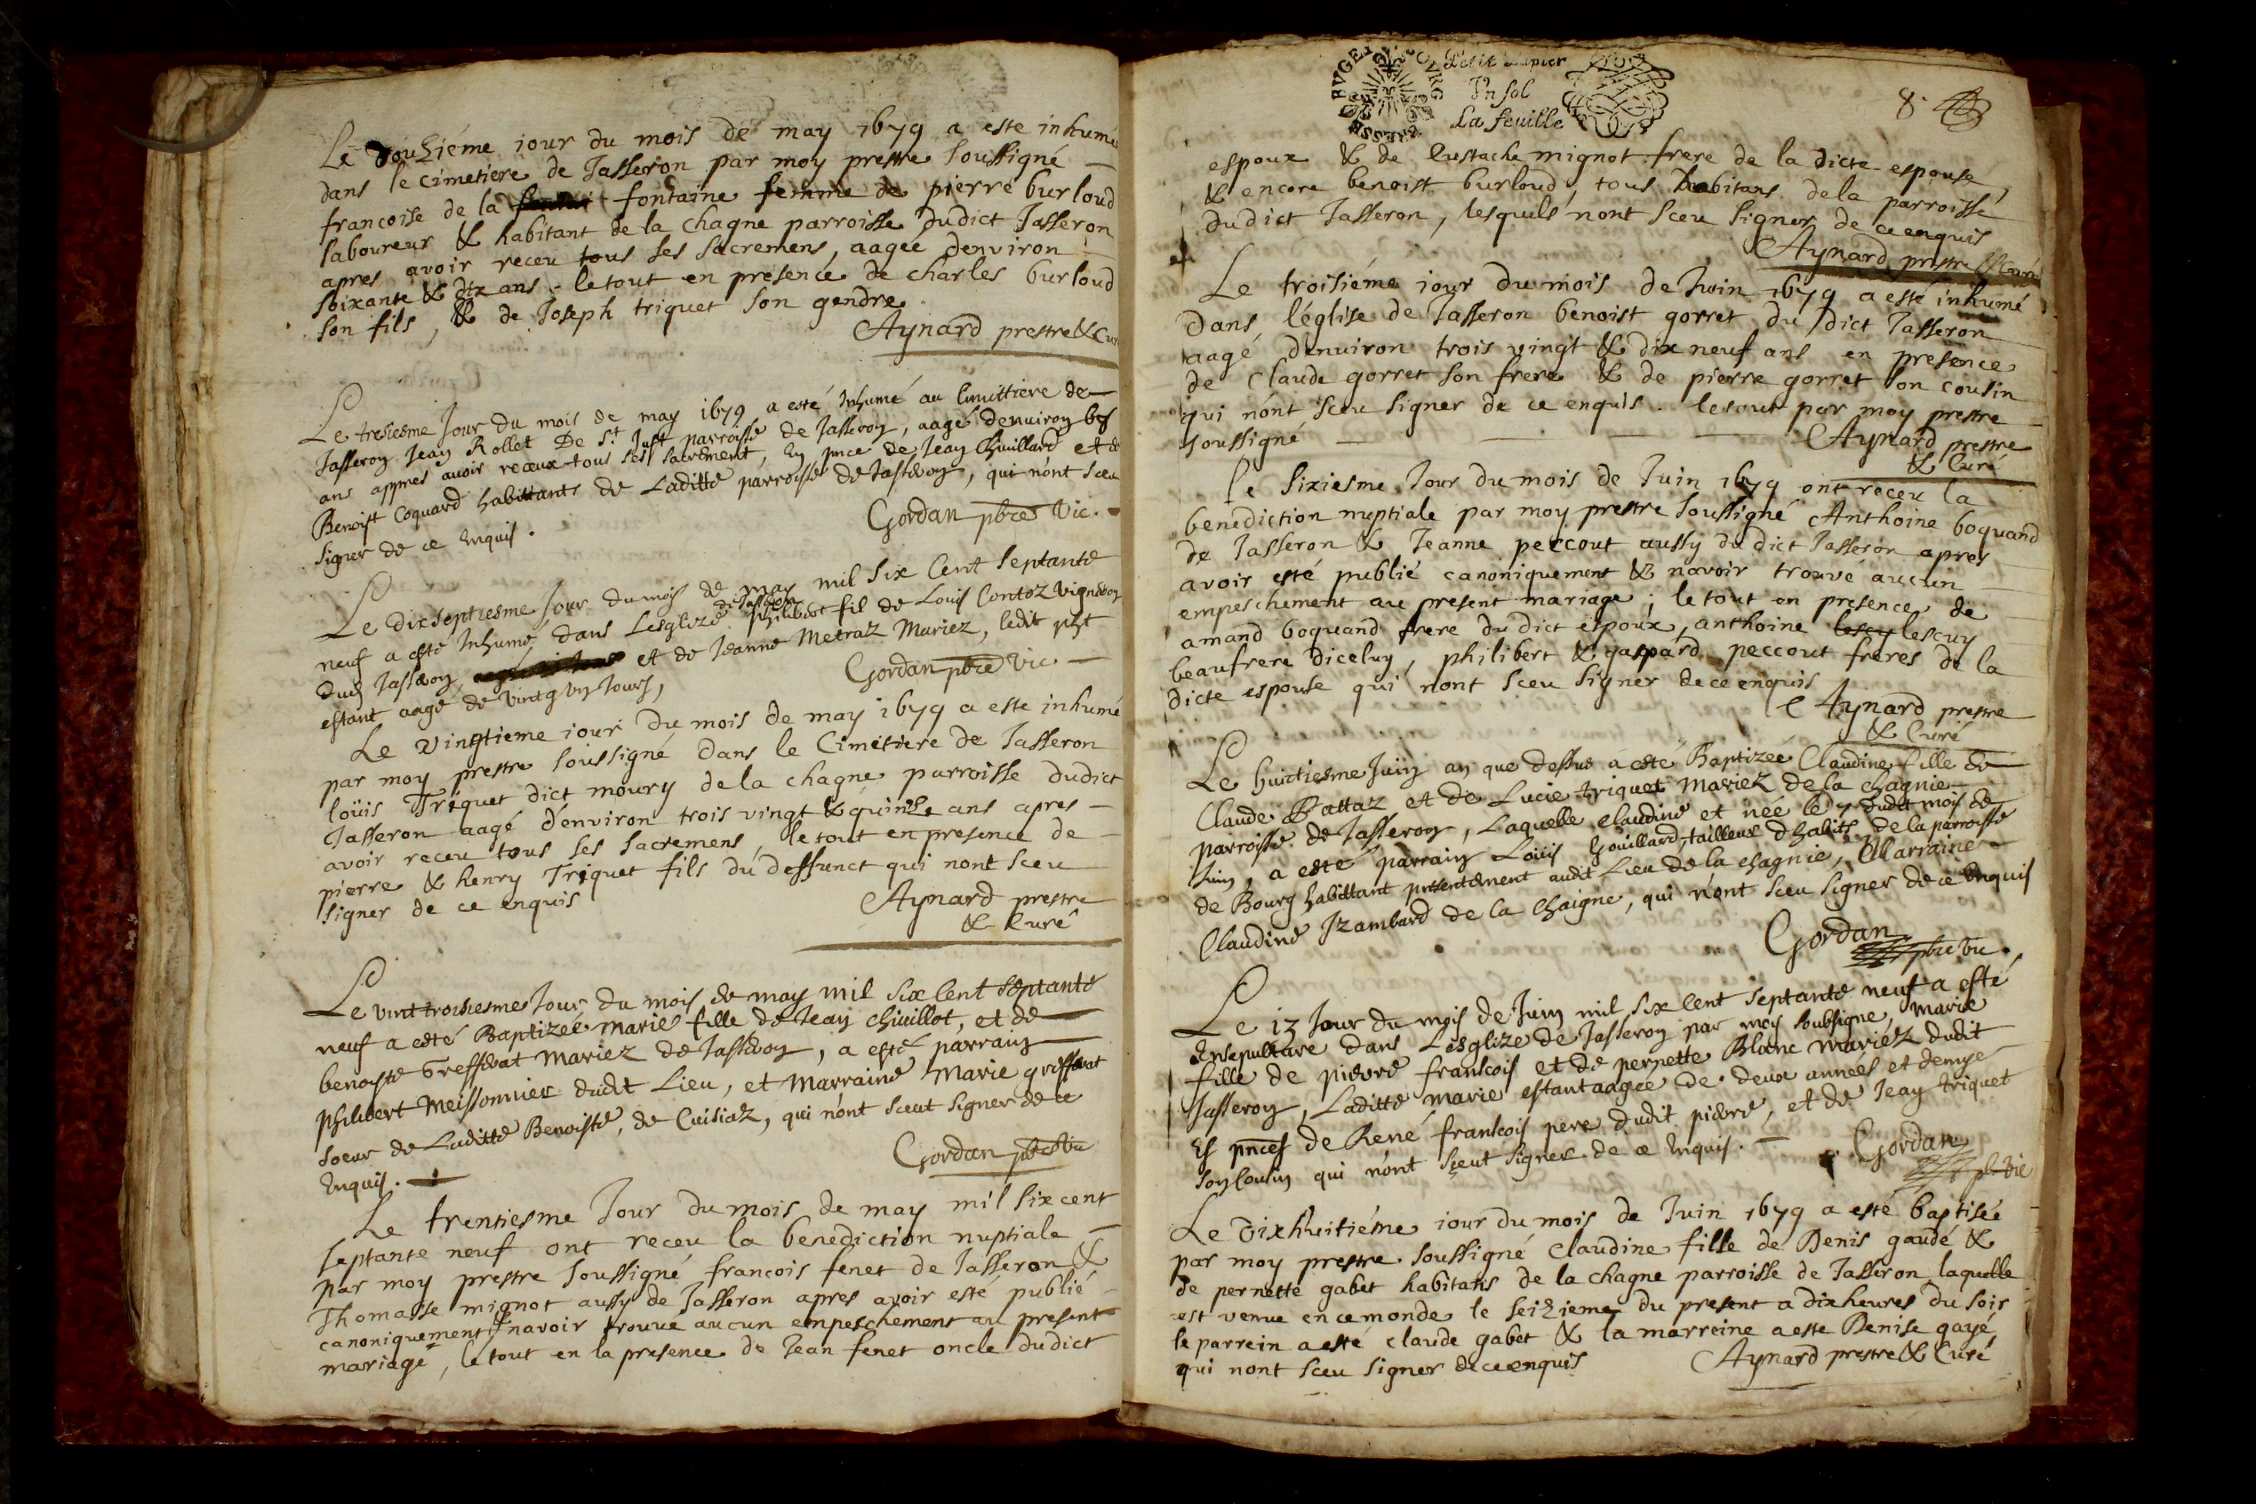 Le douziéme iour du mois de may 1679 a este inhumé
dans le cimetiere de Jasseron par moy prestre soussigné
francoise de la fontaine femme de pierre burloud
laboureur & habitant de la chagne parroisse dudict Jasseron
apres avoir receu tous ses sacremens, aagee denviron
soixante & dix ans. le tout en presence de charles burloud
son fils, & de Joseph triquet son gendre.
Aynard prestre & Curé
Le tresiesme Jour du mois de may 1679 a esté Inhumé au Cimittiere de
Jasseron Jean Rollet De St Just parroisse de Jasseron, aagé denuiron
ans appres auoir receux tous ses sacrement, En pnce de Jean Chuillard et de
Benoist Coquard habittants de Laditte parroisse de Jasseron, qui n'ont sceu
signer de ce Enquis.
Gordan pbre Vic.
Le dixseptiesme Jour du mois de may mil six Cent septante
neuf a esté Inhumé dans Lesglize de Jasseron philibert fil de Louis Contoz vigneron
dud Jasseron, et de Jeanne Metraz Mariez, ledit pht
estant aagé de vingt vn Jours,
Gordan pbre Vic
Le vingtieme iour du mois de may 1679 a este inhumé
par moy prestre soussigné dans le Cimetiere de Jasseron
loüis Triquet dict moury de la chagne parroisse dudict
Jasseron aagé d'environ trois vingt & quinze ans apres
avoir receu tous ses sacremens, le tout en presence de
pierre & henry Triquet fils du deffunct qui nont sceu
signer de ce enquis
Aynard prestre
& Curé
Le vint troisiesme Jour du mois de may mil six Cent septante
neuf a esté Baptizée marie fille de Jean chiuillot, et de
benoiste Grefferat Mariez de Jasseron, a esté parrain
philibert Meissonnier dudt Lieu, et Marraine Marie grefferat
soeur de Laditte Benoiste, de Cuisiaz, qui n'ont sceut signer de ce
Enquis.
Gordan pbre Vic
Le trentiesme Jour du mois de may mil six cent
septante neuf ont receu la benediction nuptiale
par moy prestre soussigné francois fenet de Jasseron &
Thomasse mignot aussy de Jasseron apres avoir esté publié
canoniquement & navoir trouve aucun empeschement au present
mariage, le tout en la presence de Jean fenet oncle dudict
BVGEY BOVRG BRESSE
Petit Papier
Vn sol
La feuille
8.
espoux & de Eustache mignot frere de la dicte espouse,
& encore benoist burloud, tous habitans de la parroisse
dudict Jasseron, lesquels n'ont sceu signer de ce enquis
Aynard prestre & Curé
Le troisiéme iour du mois de Juin 1679 a esté inhumé
Dans l'église de Jasseron benoist gorret du dict Jasseron
aagé d'enuiron trois vingt & dix neuf ans en presence
de Claude gorret son frere & de pierre gorret son cousin
qui n'ont sceu signer de ce enquis. le tout par moy prestre
soussigné
Aynard prestre
& Curé
Le sixiesme Jour du mois de Juin 1679 ont receu la
benediction nuptiale par moy prestre soussigné Anthoine boquand
de Jasseron & Jeanne peccout aussy du dict Jasseron apres
avoir esté publié canoniquement & n'avoir trouvé aucun
empeschement au present mariage; le tout en presence de
amand boquand frere du dict espoux, anthoine lescy lescuy
beaufrere diceluy, philibert & gaspard peccout freres de la
dicte espouse qui n'ont sceu signer de ce enquis
Aynard prestre
& Curé
Le huictiesme Juin an que dessus a esté Baptizée Claudine fille de
Claude Battaz et de Lucie triquet Mariez de la Chagnie
parroisse de Jasseron, Laquelle Claudine et née le 7 dudt mois de
Juin, a esté parrain Louis Gouillard tailleur d'habits de la parroisse
de Bourg habittant presentement audit Lieu de la chagnie, Marraine
Claudine Izambard de la Chaigne, qui n'ont sceu signer de ce Enquis
Gordan
pbre vic.
Le 12 Jour du mois de Juin mil six cent septante neuf a esté
Ensepulture dans Lesglize de Jasseron par moy soubsigne, Marie
fille de pierre francois et de pernette Blanc mariéz dudit
Jasseron, Laditte Marie estant aagée de deux années et demye
Es pnces de René francois pere dudit pierre, et de Jean triquet
son Cousin qui n'ont sceut signer de ce Enquis.
Gordan
pbre vic
Le dixhuitiéme iour du mois de Juin 1679 a esté baptisée
par moy prestre soussigné Claudine fille de Denis gaudé &
de pernette gabet habitans de la chagne parroisse de Jasseron laquelle
est venue en ce monde le seizieme du present a dix heures du soir
le parrein a esté claude gabet & la marreine a este Denise gayé
qui nont sceu signer de ce enquis
Aynard prestre & Curé